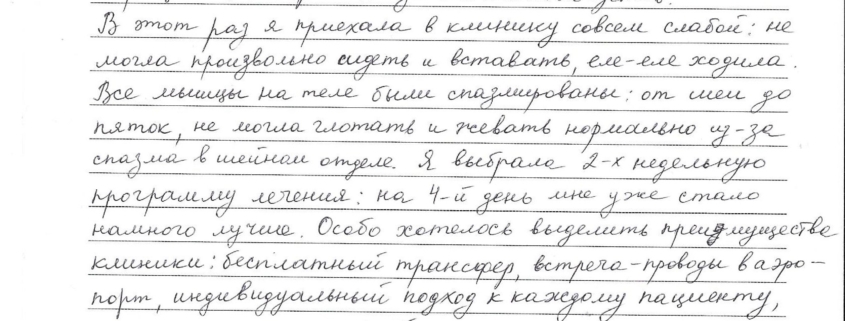 В этот раз я приехала в клинику совсем слабой: не
могла произвольно сидеть и вставать, еле-еле ходила.
Все мышцы на теле были спазмированы: от шеи до
пяток, не могла глотать и жевать нормально из-за
спазма в шейном отделе. Я выбрала 2-х недельную
программу лечения: на 4-й день мне уже стало
намного лучше. Особо хотелось выделить преимущества
клиники: бесплатный трансфер, встреча-проводы в аэро-
порт, индивидуальный подход к каждому пациенту,